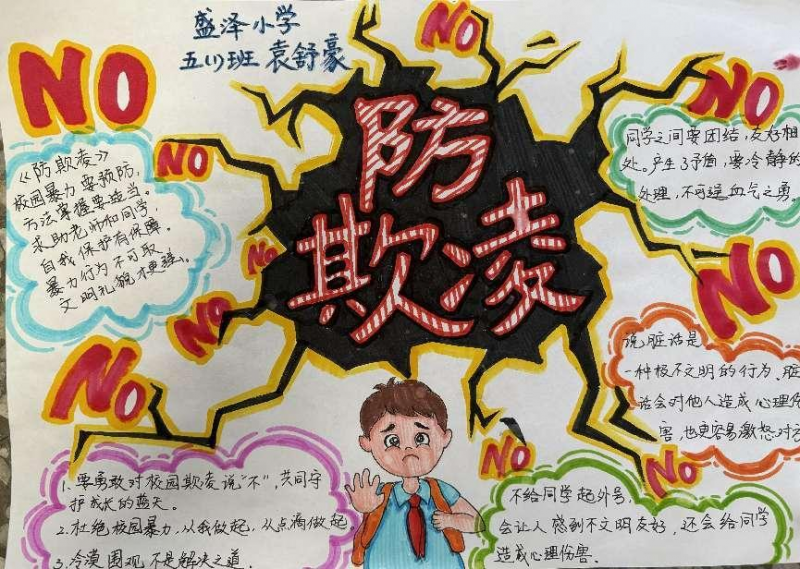 盛泽小学
五(1)班 袁舒豪
NO
NO
NO
NO
NO
NO
NO
NO
NO
NO
防
欺凌
《防欺凌》
校园暴力要预防,
方法掌握要适当。
求助老师和同学,
自我保护有保障。
暴力行为不可取,
文明礼貌才更强。
同学之间要团结,友好相
处。产生了矛盾,要冷静的
处理,不可逞血气之勇。
说脏话是
一种极不文明的行为、脏
话会对他人造成心理伤
害,也更容易激怒对方
1.要勇敢对校园欺凌说“不”,共同守
护成长的蓝天。
2.杜绝校园暴力,从我做起,从点滴做起
3.冷漠围观不是解决之道.
不给同学起外号,
会让人感到不文明友好,还会给同学
造成心理伤害.